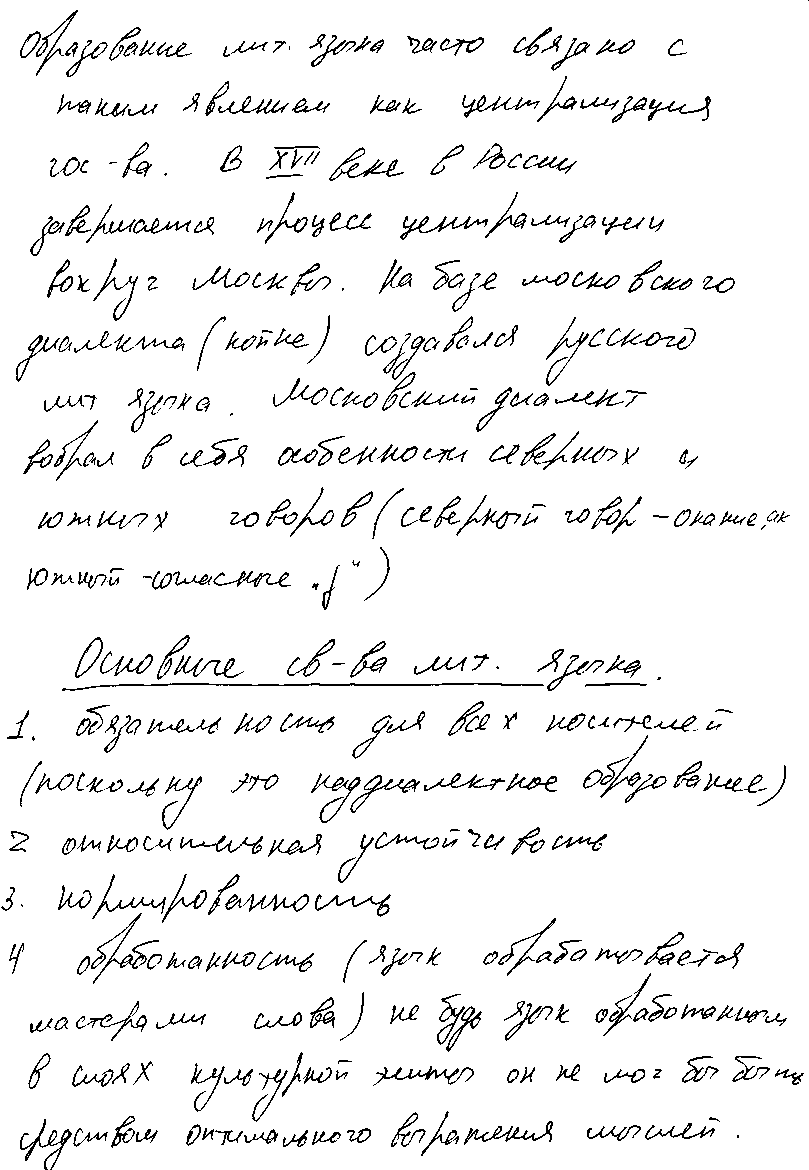 Образование лит. языка часто связано с
таким явлением как централизация
гос-ва. В XVII веке в России
завершается процесс централизации
вокруг Москвы. На базе московского
диалекта (койне) создавался русского
лит языка. Московский диалект
вобрал в себя особенности северных и
южных говоров (северный говор - окание,
южный - согласные "ɣ")
Основные св-ва лит. языка.
1. обязательность для всех носителей
(поскольку это наддиалектное образование)
2 относительная устойчивость
3. нормированность
4 обработанность (язык обрабатывается
мастерами слова) не будь язык обработанным
в слоях культурной элиты он не мог бы быть
средством оптимального выражения мыслей.